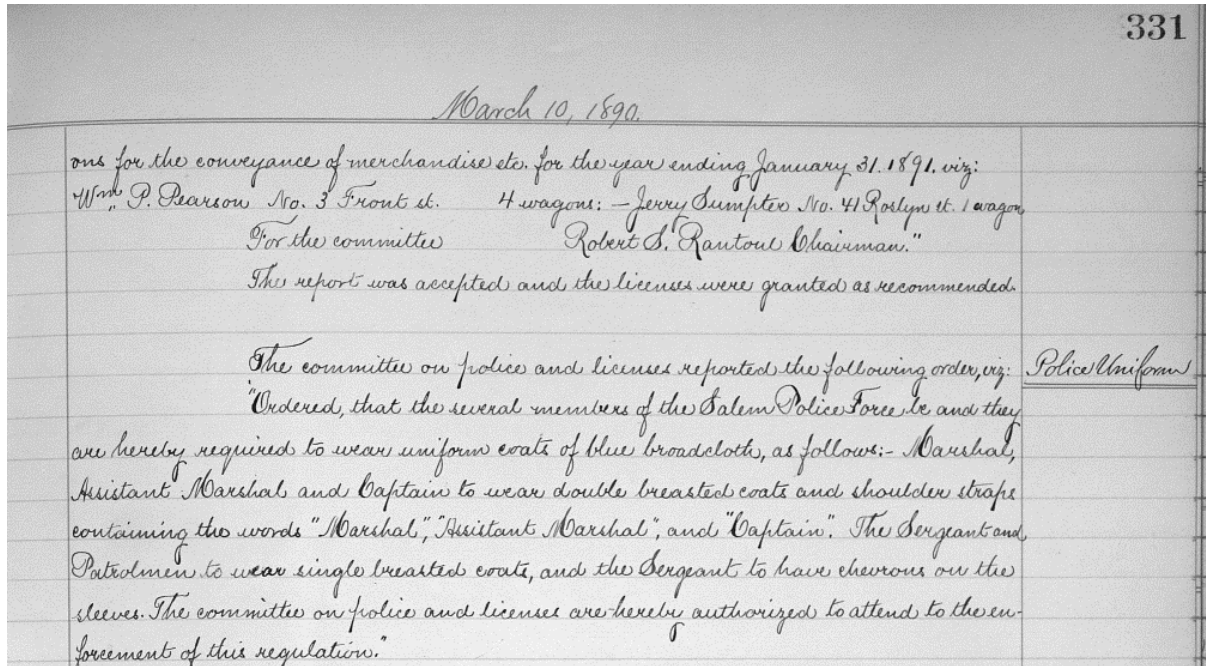 331
March 10, 1890.
ons for the conveyance of merchandise etc. for the year ending January 31. 1891. viz:
Wm. P. Pearson No. 3 Front st. 4 wagons: – Jerry Sumpter No. 41 Roslyn st. 1 wagon
For the committee Robert S. Rantoul Chairman."
The report was accepted and the licenses were granted as recommended.
The committee on police and licenses reported the following order, viz: Police Uniform
"Ordered, that the several members of the Salem Police Force be and they
are hereby required to wear uniform coats of blue broadcloth, as follows:- Marshal,
Assistant Marshal and Captain to wear double breasted coats and shoulder straps
containing the words "Marshal", "Assistant Marshal", and "Captain". The Sergeant and
Patrolmen to wear single breasted coats, and the Sergeant to have chevrons on the
sleeves. The committee on police and licenses are hereby authorized to attend to the en-
forcement of this regulation."